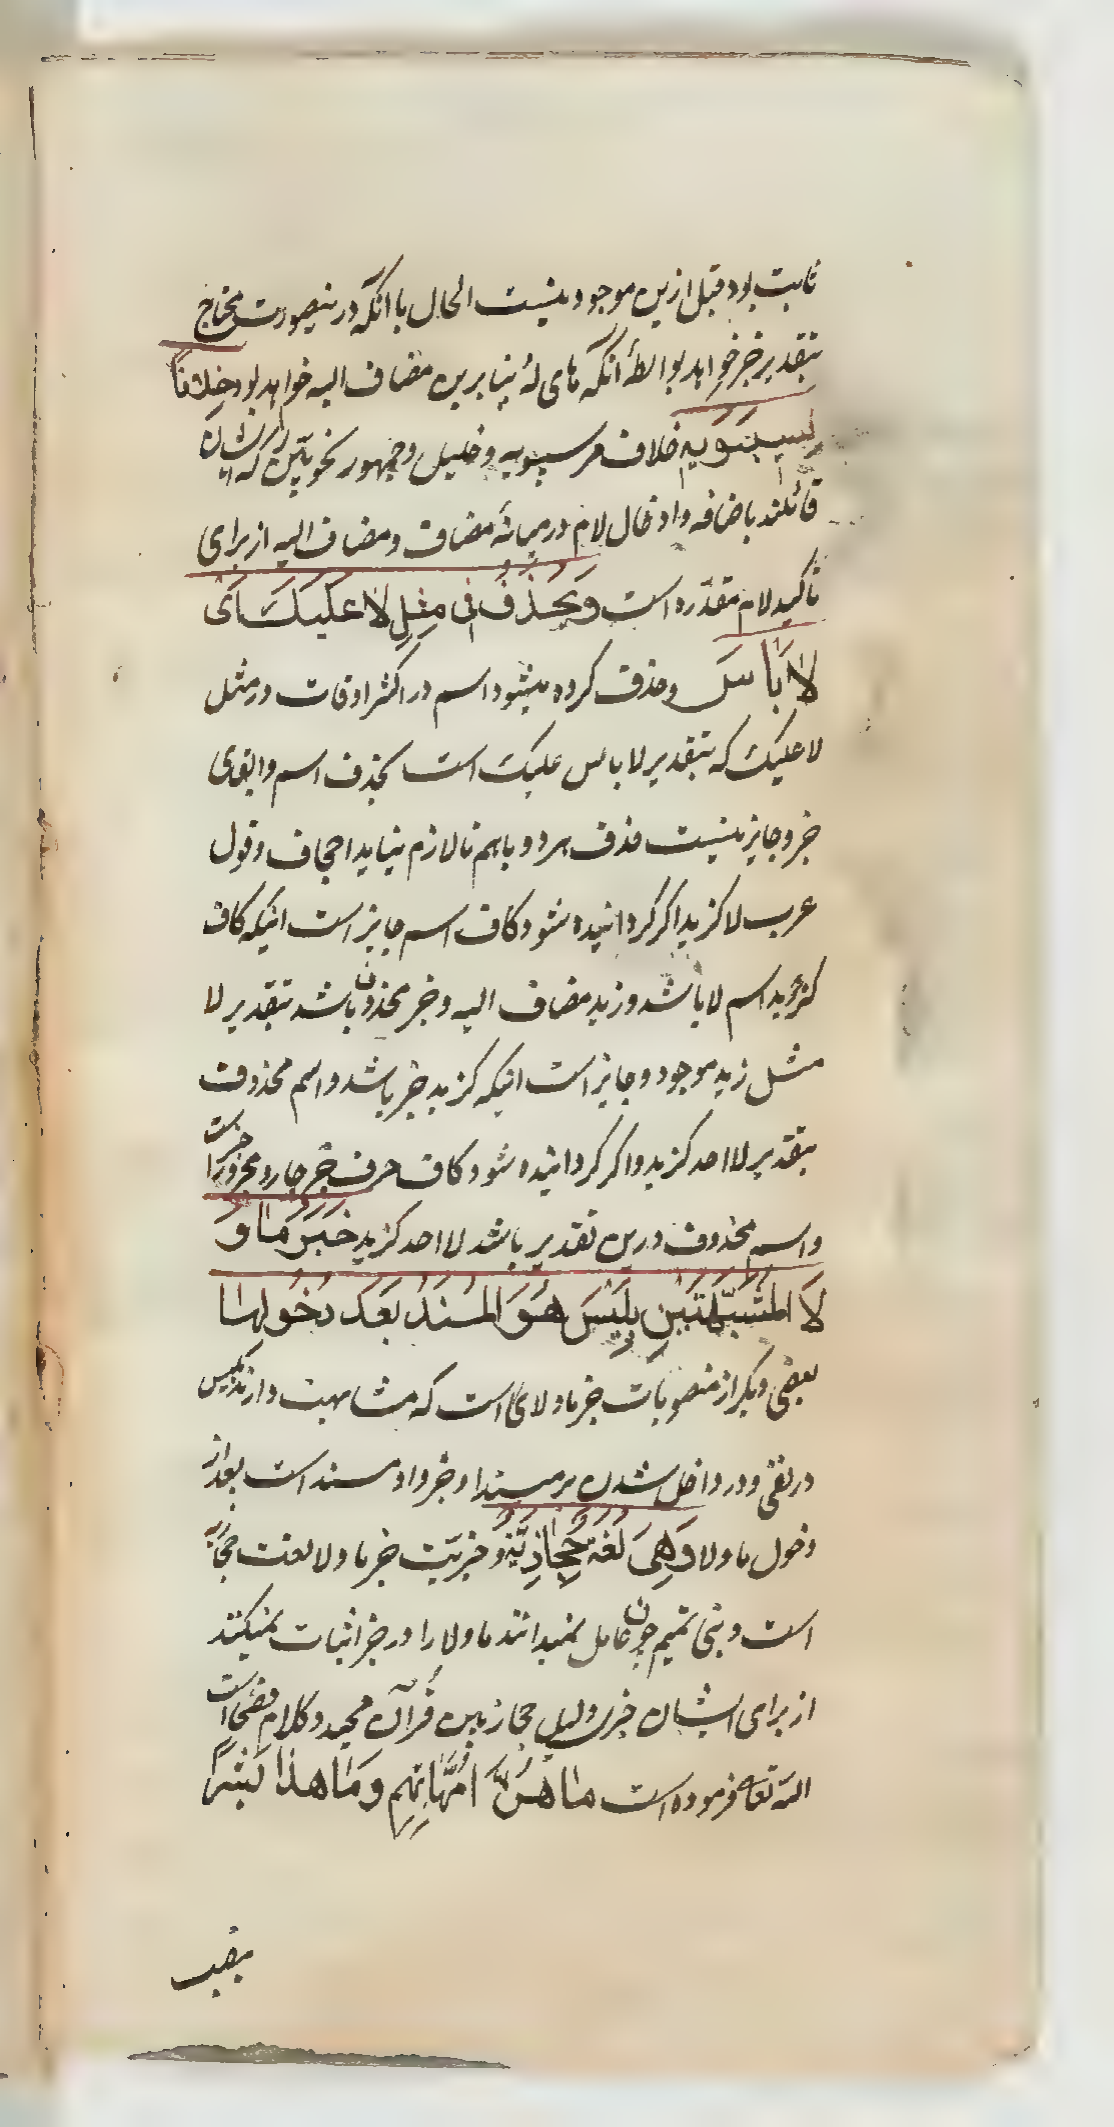 ثابت بود قبل ازین موجود نیست الحال با آنکه درینصورت محتاج
بتقدیر خبر خواهد بود بواسطهٔ آنکه های لهٔ بنابرین مضاف الیه خواهد بود خِلَافًا
لِسِیبَوَیهِ خلاف مر سیبویه و خلیل و جمهور نحویین را که ایشان
قائلند باضافه و ادخال لام در میانهٔ مضاف و مضاف الیه از برای
تاکید لام مقدّره است وَیُحْذَفُ فی مِثلِ لَا عَلَیكَ اَی
لَا بَاْسَ و حذف کرده میشود اسم در اکثر اوقات در مثل
لا علیك که بتقدیر لا باس علیك است بحذف اسم و ابقای
خبر و جایز نیست حذف هر دو باهم تا لازم نیاید اجحاف و قول
عرب لا کزید اگر گردانیده شود کاف اسم جایز است اینکه کاف
کزید اسم لا باشد و زید مضاف الیه و خبر محذوف باشد بتقدیر لا
مثل زید موجود و جایز است اینکه کزید خبر باشد و اسم محذوف
بتقدیر لا احد کزید و اگر گردانیده شود کاف حرف جر جار و مجرور خبر است
و اسم محذوف درین تقدیر باشد لا احد کزید خَبَرُ مَا وَ
لَا المُشَبَّهَتَینِ بِلَیْسَ هُوَ المُسْنَدُ بَعْدَ دُخُولِهَا
بعضی دیگر از منصوبات خبر ما و لای است که مشابهت دارند بلیس
در نفی و در داخل شدن بر مبتدا و خبر و او مسند است بعد از
دخول ما و لا وَهِیَ لُغَةٌ حِجَازِیَّةٌ و خبریّت خبر ما و لا لغت حجازیه
است و بنی تمیم چون عامل نمیدانند ما و لا را در خبر اثبات نمیکنند
از برای ایشان خبری و دلیل حجازیین قُرآن مجید و کلام است
الله تعالی فرموده است مَا هُنَّ اُمَّهَاتِهِم وَمَا هذَا بَشَرًا